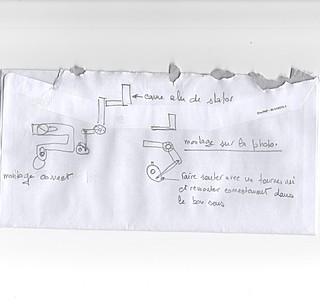 ← carne alu de stator
montage sur la photo.
montage correct
faire sauter avec un tournevis
et remonter correctement dans
le bon sens